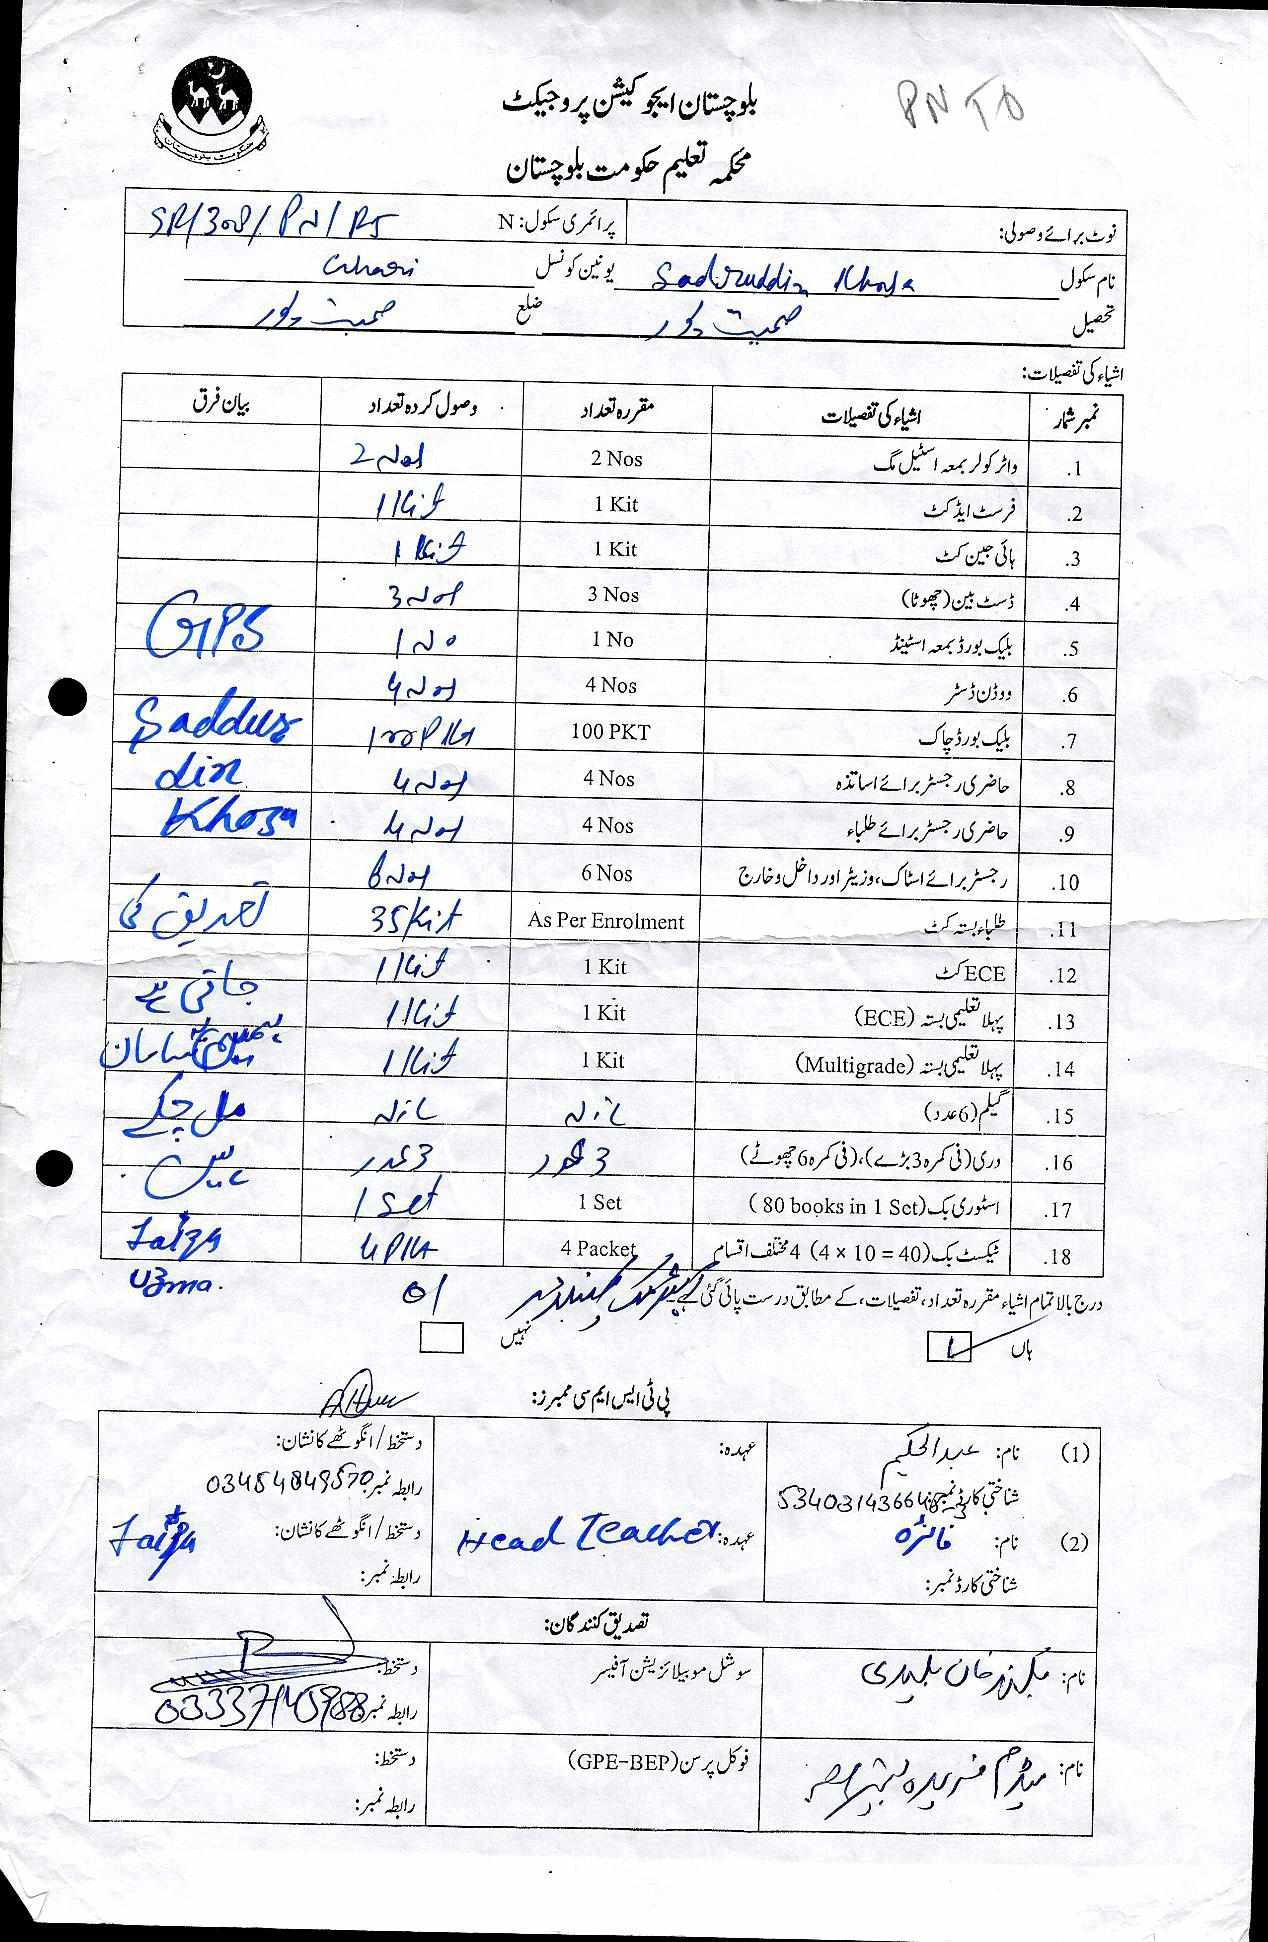 PNTD
بلوچستان ایجوکیشن پروجیکٹ
محکمہ تعلیم حکومت بلوچستان
حکومت بلوچستان
نوٹ برائے وصولی: پرائمری سکول: N SR/308/PN/RJ
نام سکول Sadruddin Khosa یونین کونسل Ghari
تحصیل صحبت پور ضلع صحبت پور
اشیاء کی تفصیلات:
نمبر شمار اشیاء کی تفصیلات مقررہ تعداد وصول کردہ تعداد بیان فرق
1. واٹر کولر بمعہ اسٹیل مگ 2 Nos 2 Nos
2. فرسٹ ایڈ کٹ 1 Kit 1 Kit
3. ہائی جین کٹ 1 Kit 1 Kit
4. ڈسٹ بین (چھوٹا) 3 Nos 3 Nos
5. بلیک بورڈ بمعہ اسٹینڈ 1 No 1 No GPS
6. ووڈن ڈسٹر 4 Nos 4 Nos
7. بلیک بورڈ چاک 100 PKT 100 Pkt Saddur
8. حاضری رجسٹر برائے اساتذہ 4 Nos 4 Nos din
9. حاضری رجسٹر برائے طلباء 4 Nos 4 Nos Khosa
10. رجسٹر برائے اسٹاک، وزیٹر اور داخل و خارج 6 Nos 6 Nos
11. طلباء بستہ کٹ As Per Enrolment 35/Kit تصدیق کی
12. ECE کٹ 1 Kit 1 Kit جاتی ہے
13. پہلا تعلیمی بستہ (ECE) 1 Kit 1 Kit
14. پہلا تعلیمی بستہ (Multigrade) 1 Kit 1 Kit سامان
15. گیلم (6 عدد) Nil Nil مل چکے
16. دری (فی کمرہ 3 بڑے)، (فی کمرہ 6 چھوٹے) 3 عدد 3 عدد ہیں
17. اسٹوری بک (80 books in 1 Set) 1 Set 1 Set
18. ٹیکسٹ بک (4 × 10 = 40) 4 مختلف اقسام 4 Packet 4 Pkt Faiza
Uzma.
درج بالا تمام اشیاء مقررہ تعداد، تفصیلات، کے مطابق درست پائی گئی ہے۔ 01
ہاں نہیں
پی ٹی ایس ایم سی ممبرز:
(1) نام: عبدالحکیم عہدہ: دستخط / انگوٹھے کا نشان:
شناختی کارڈ نمبر: رابطہ نمبر: 03454849570
(2) نام: فائزہ عہدہ: Head Teacher دستخط / انگوٹھے کا نشان: Faiza
شناختی کارڈ نمبر: رابطہ نمبر:
تصدیق کنندگان:
نام: خان بلیدی سوشل موبیلائزیشن آفیسر دستخط:
رابطہ نمبر: 03337145988
نام: میڈم فریدہ فوکل پرسن (GPE-BEP) دستخط:
رابطہ نمبر: